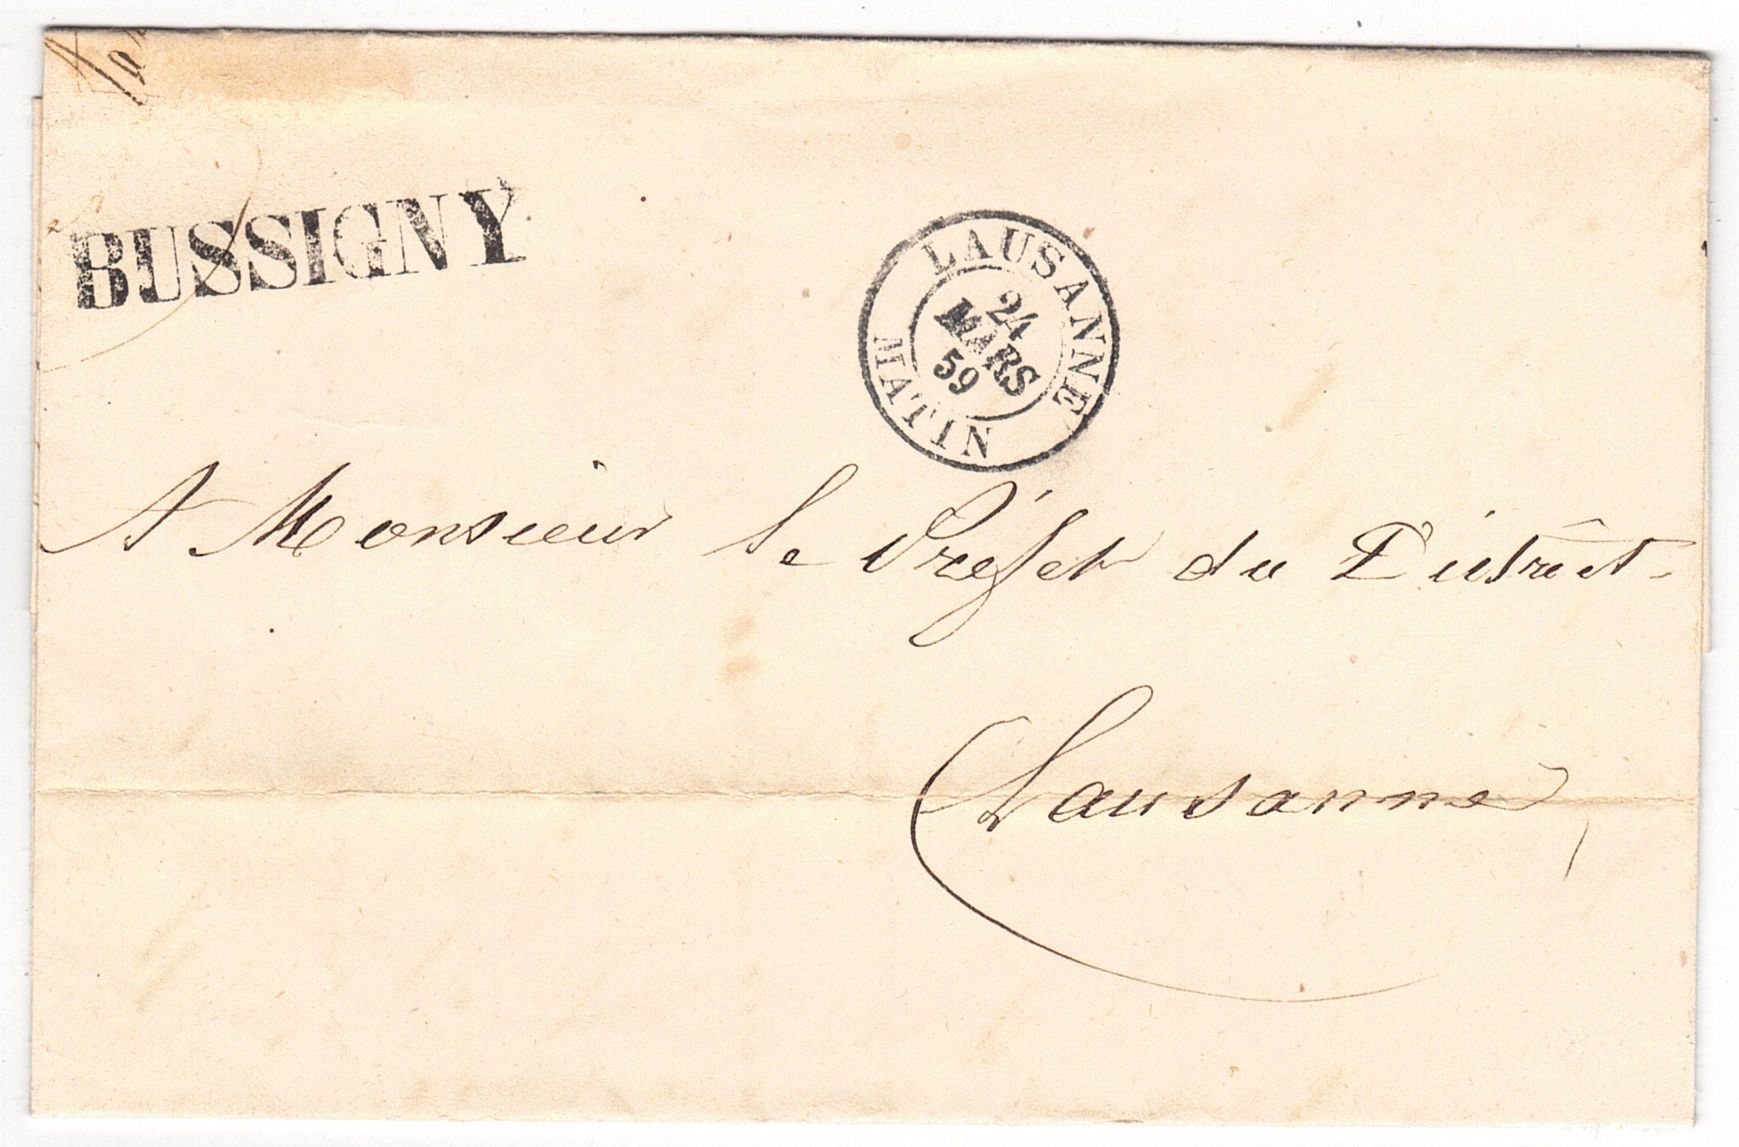 BUSSIGNY
LAUSANNE
24
MARS
59
MATIN
A Monsieur le Préfet du District
Lausanne